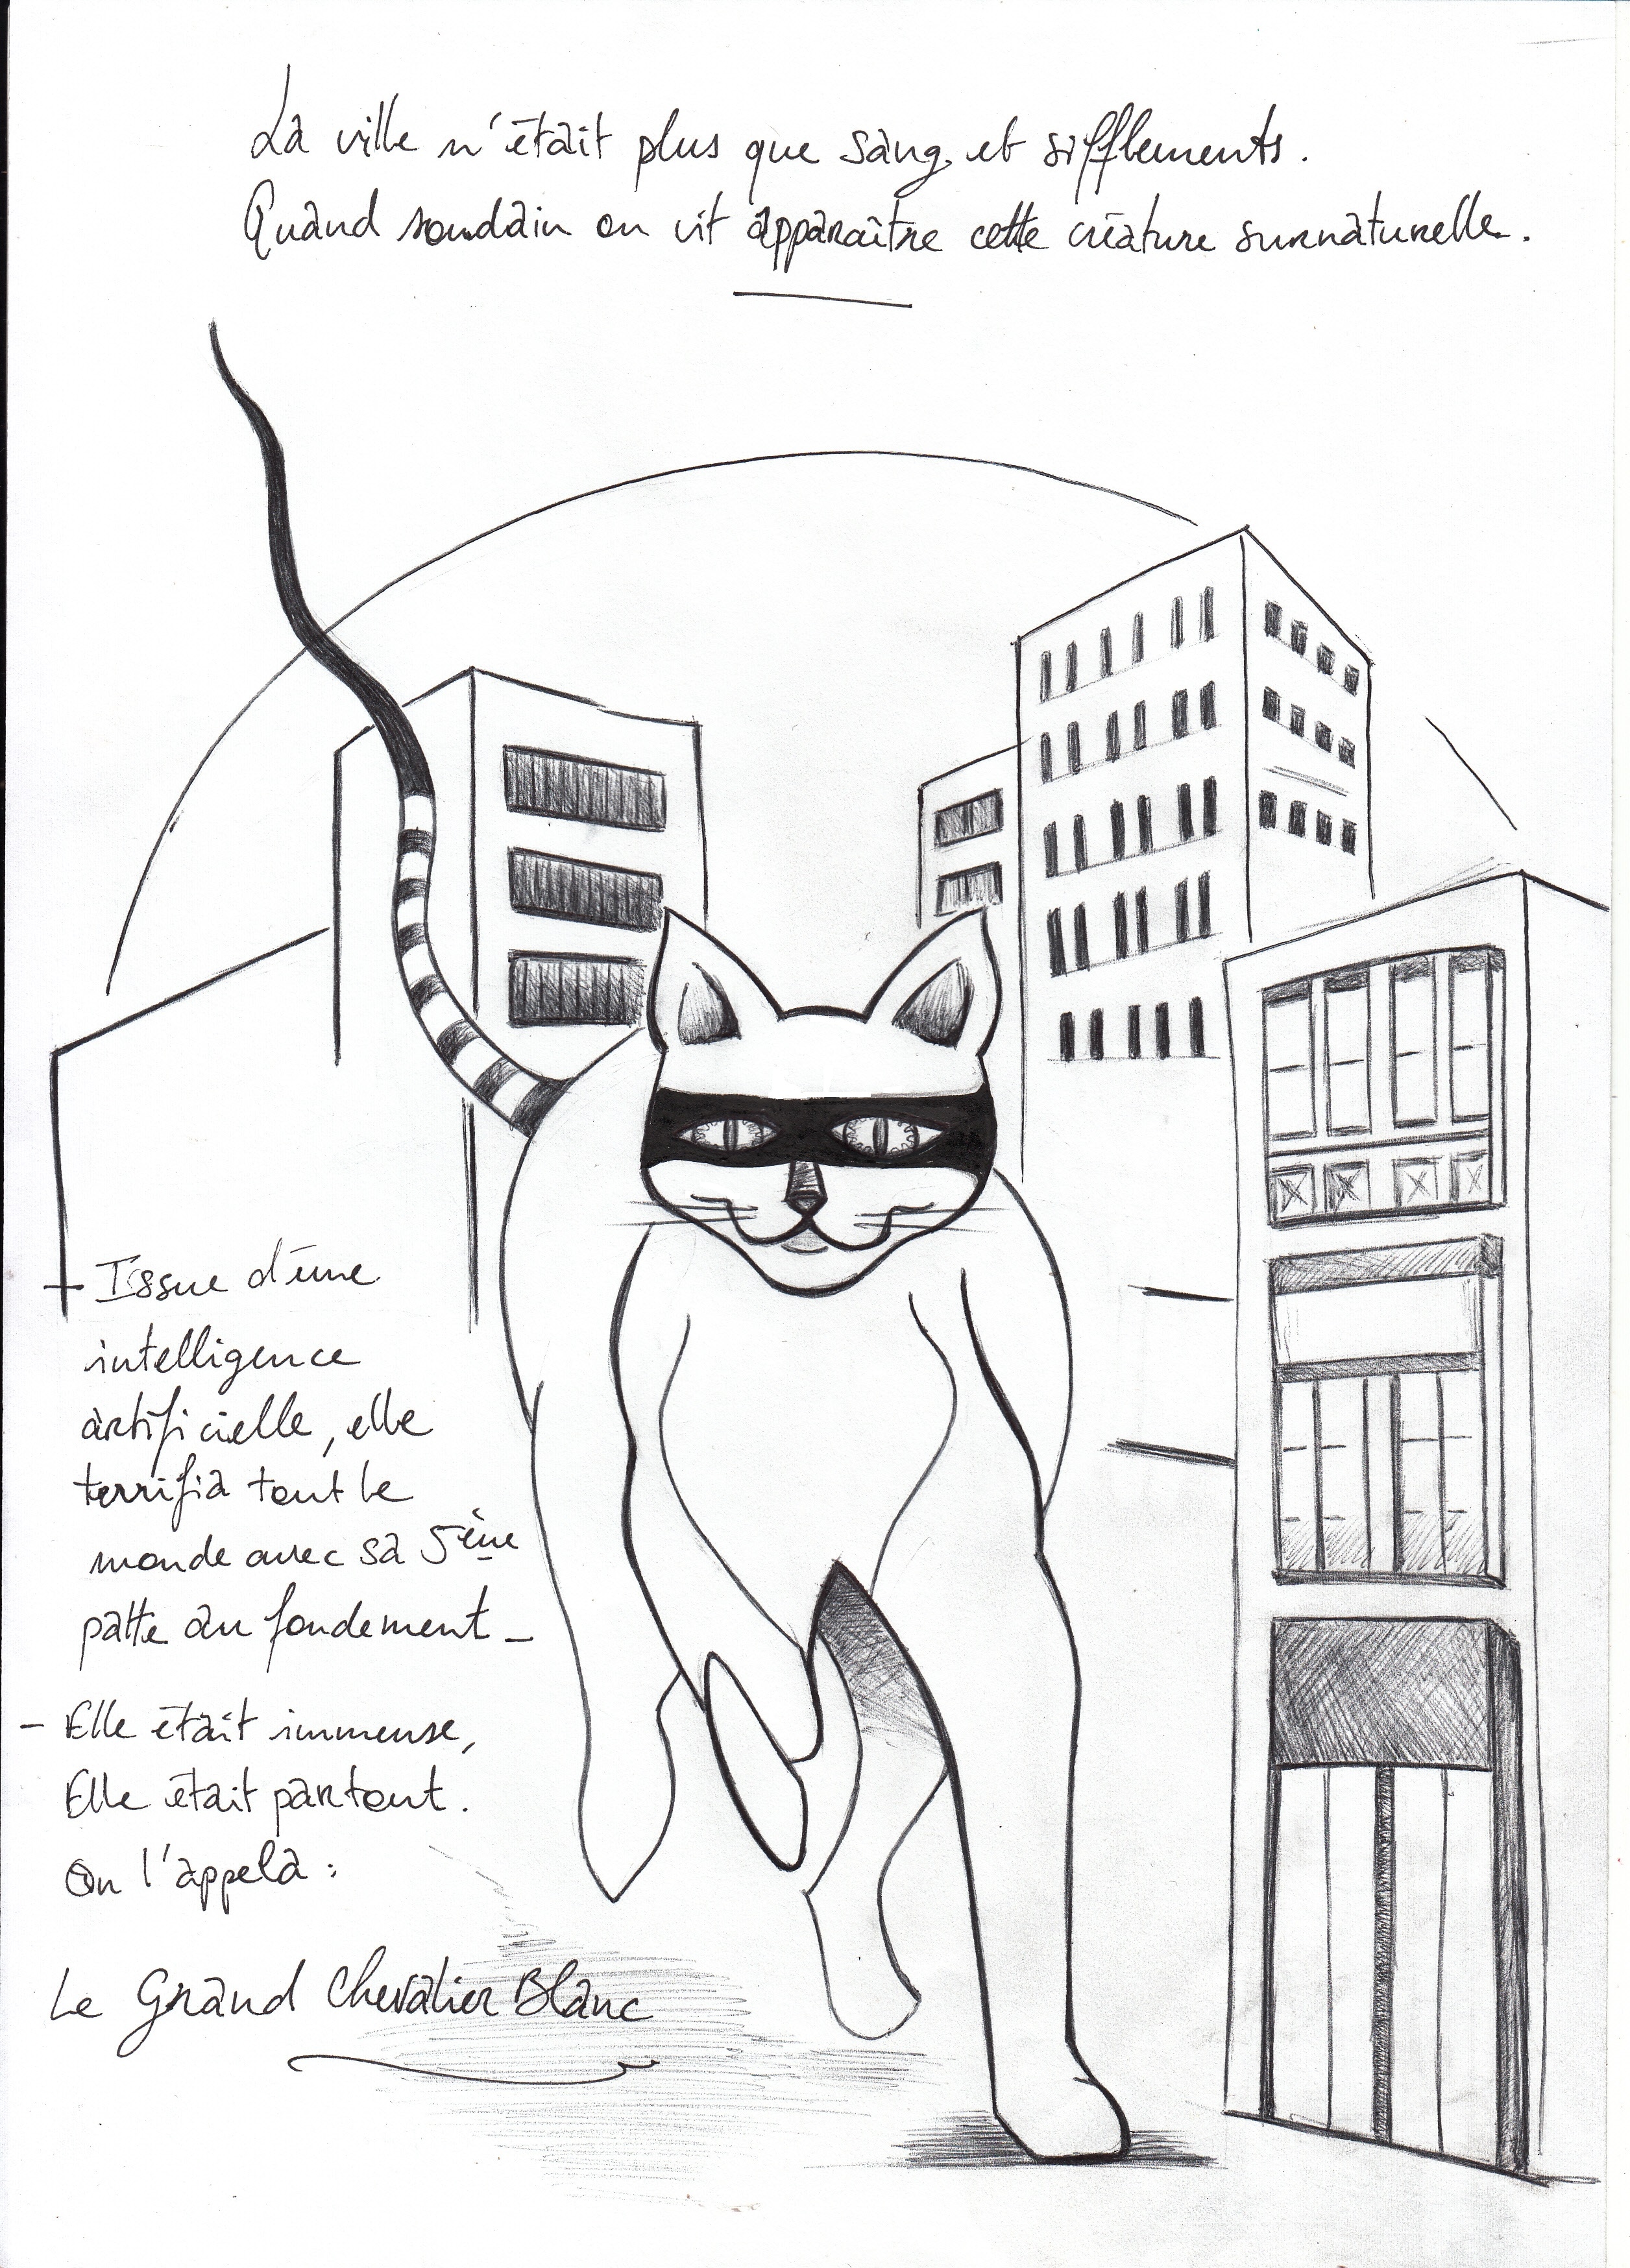 La ville n'était plus que sang et sifflements.
Quand soudain on vit apparaître cette créature surnaturelle.
- Issue d'une
intelligence
artificielle, elle
terrifia tout le
monde avec sa 5ème
patte au fondement -
- Elle était immense,
Elle était partout.
On l'appela :
Le Grand Chevalier Blanc